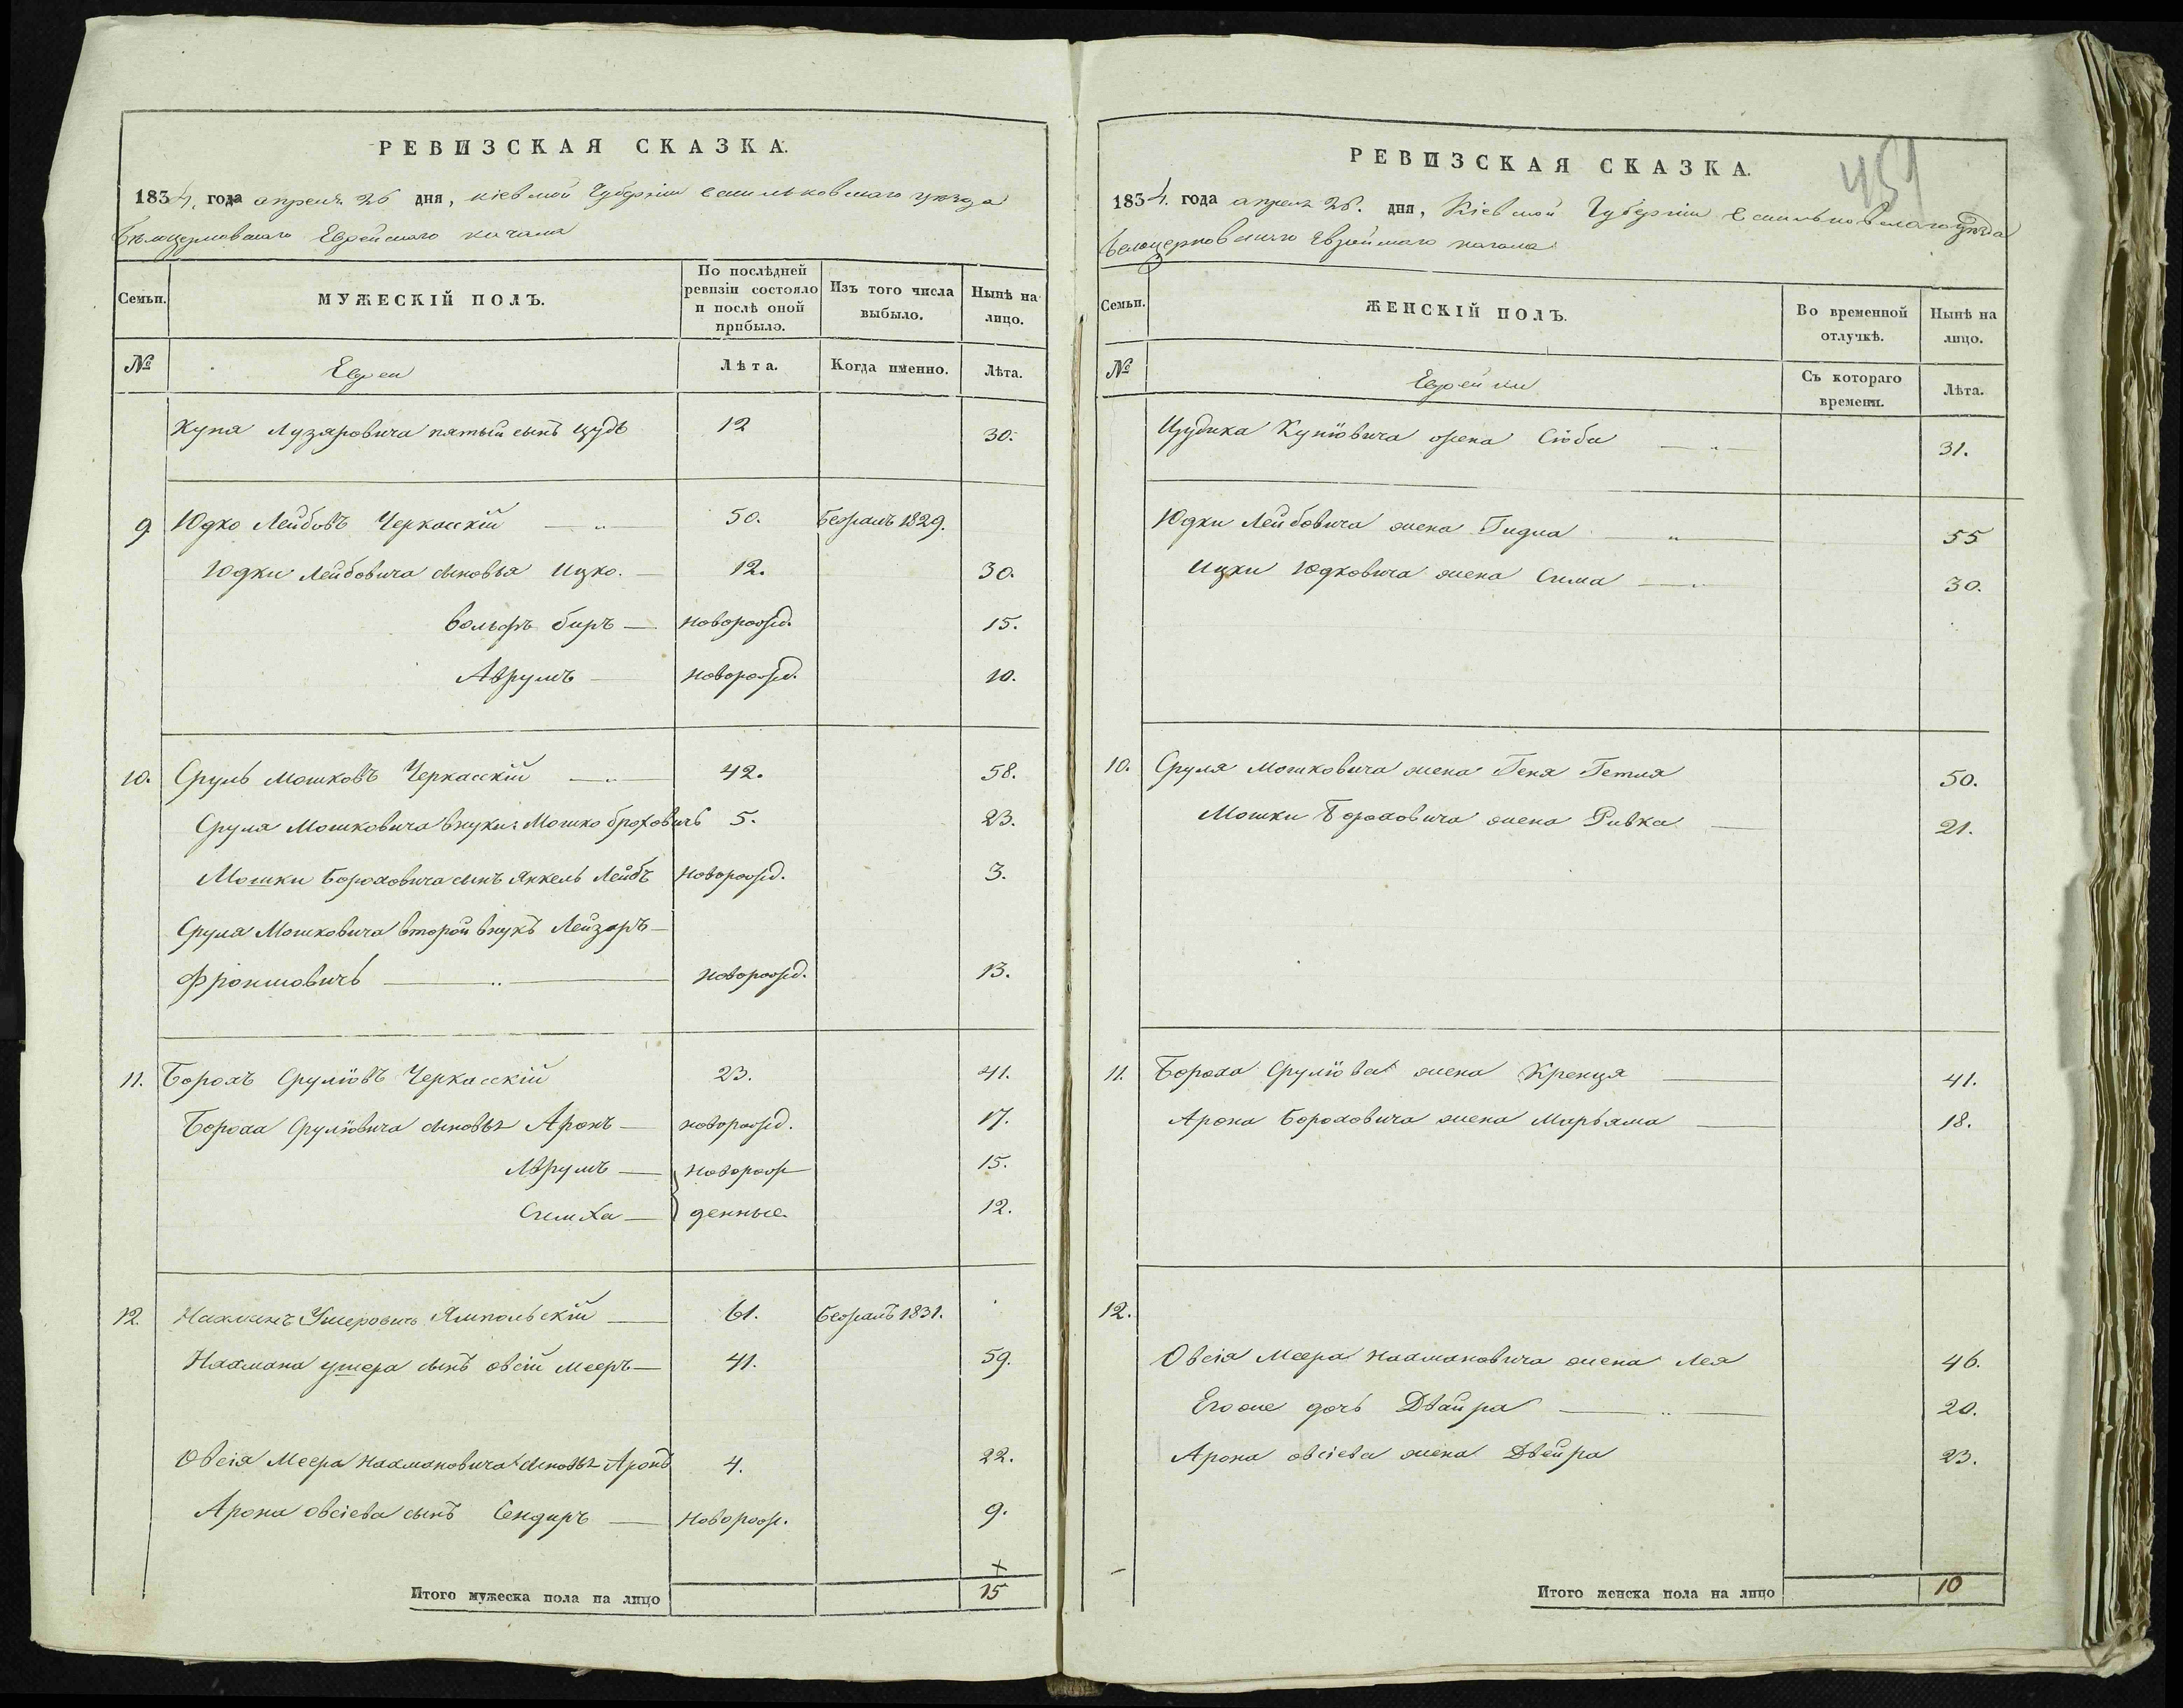 РЕВИЗСКАЯ СКАЗКА.
1834. года апреля 26 дня, Кіевской Губерніи Васильковскаго уѣзда
Бѣлоцерковскаго Еврейскаго кагала
Семьи.
МУЖЕСКІЙ ПОЛЪ.
По послѣдней ревизіи состояло и послѣ оной прибыло.
Изъ того числа выбыло.
Нынѣ на лицо.
№
Евреи
Лѣта.
Когда именно.
Лѣта.
Куна Лузаровича пятый сынъ Цудь 12 30.
9 Юдко Лейбовъ Черкасскій — 〃 50. Безъ 1829.
Юдки Лейбовича сыновья Ицко. — 12. 30.
Вольфъ Биръ — новорожд. 15.
Аврумъ — новорожд. 10.
10. Сруль Мошковъ Черкасскій — 〃 — 42. 58.
Сруля Мошковича внуки: Мошко Броховичъ 5. 23.
Мошки Бороховича сынъ Янкель Лейбъ новорожд. 3.
Сруля Мошковича второй внукъ Лейзоръ —
Фроимовичъ — 〃 — новорожд. 13.
11. Борохъ Срулiовъ Черкасскій 23. 41.
Бороха Срулiовича сыновья Аронъ — новорожд. 17.
Аврумъ — новорож 15.
Симха — денные 12.
12. Нахманъ Ушеровичъ Ямпольскій — 61. 1831.
Нахмана Ушера сынъ Овсій Мееръ — 41. 59.
Овсія Меера Нахмановича сыновья Аронъ 4. 22.
Арона Овсіева сынъ Сендеръ — новорож. 9.
+
Итого мужеска пола на лицо 15
459
РЕВИЗСКАЯ СКАЗКА.
1834. года апреля 26. дня, Кіевской Губерніи Васильковскаго уѣзда
Белоцерковскаго Еврейскаго кагала
Семьи.
ЖЕНСКІЙ ПОЛЪ.
Во временной отлучкѣ.
Нынѣ на лицо.
№
Еврейки
Съ котораго времени.
Лѣта.
Цудика Куніовича жена Сіоба — 〃 — 31.
Юдки Лейбовича жена Гидла — 〃 — 55
Ицки Юдковича жена Сима — 30.
10. Сруля Мошковича жена Геня Гетля 50.
Мошки Бороховича жена Ривка — 21.
11. Бороха Срулiова жена Кренця — 41.
Арона Бороховича жена Марьяма — 18.
12.
Овсія Меера Нахмановича жена Лея 46.
Его же дочь Двойра — 〃 — 20.
Арона Овсіева жена Двейра 23.
Итого женска пола на лицо 10